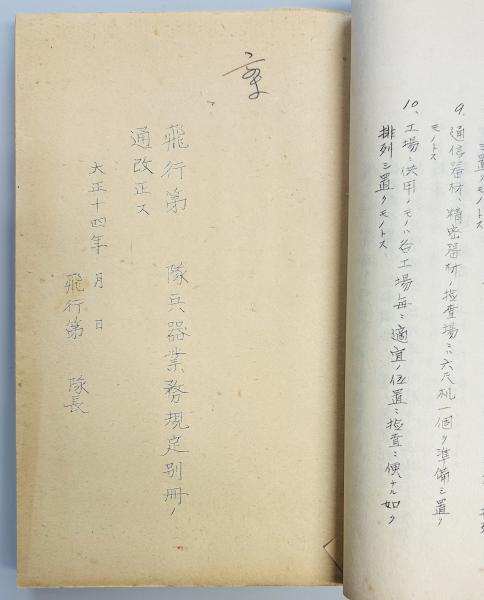 9. 通信器材、精密器材ノ検査場ニハ六尺机一個ヲ準備シ置ク
モノトス
10、工場ニ供用ノモノハ各工場毎ニ適宜ノ位置ニ検査ニ便ナル如ク
排列シ置クモノトス
案
飛行第 隊兵器業務規定別冊ノ
通改正ス
大正十四年 月 日
飛行第 隊長